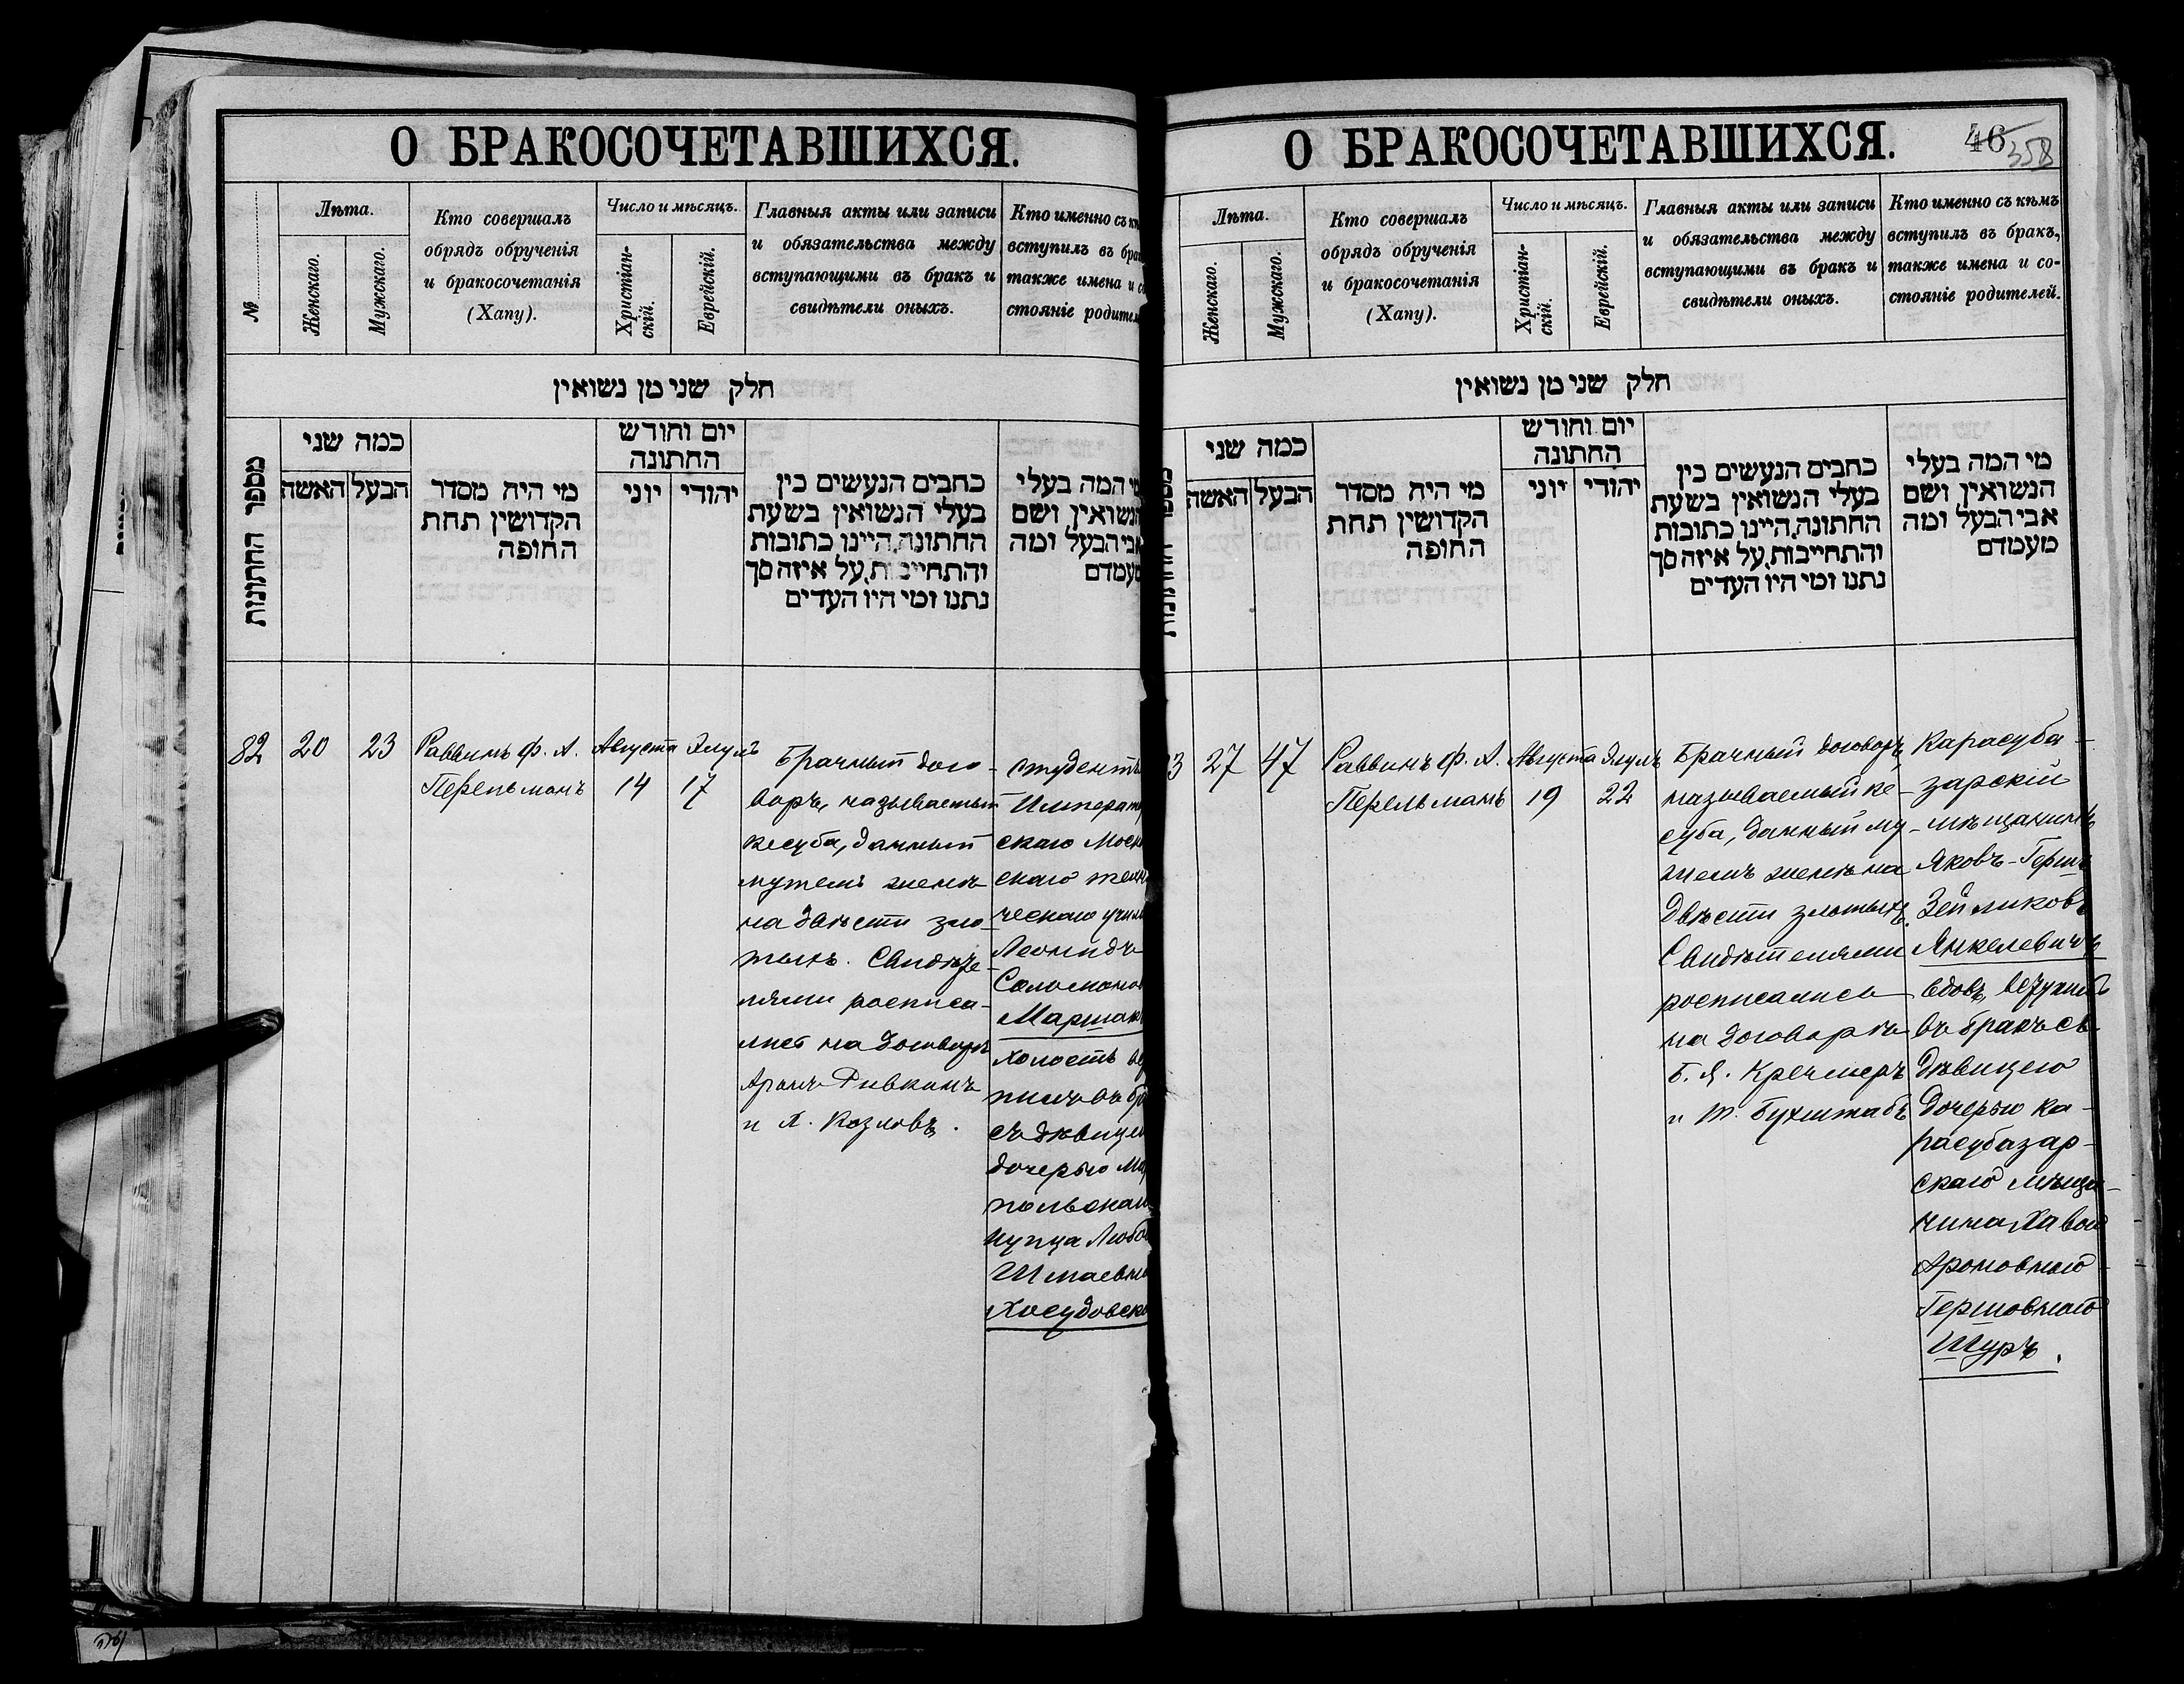 О БРАКОСОЧЕТАВШИХСЯ.
№
Лѣта.
Женскаго.
Мужскаго.
Кто совершалъ
обрядъ обрученія
и бракосочетанія
(Хапу).
Число и мѣсяцъ.
Христіан-
скій.
Еврейскій.
Главныя акты или записи
и обязательства между
вступающими въ бракъ и
свидѣтели оныхъ.
Кто именно съ
вступилъ въ
также имена и
стояніе
חלק שני מן נשואין
מספר החתונות
כמה שני
האשה
הבעל
מי היה מסדר
הקדושין תחת
החופה
יום וחודש
החתונה
יוני
יהודי
כתבים הנעשים בין
בעלי הנשואין בשעת
החתונה, היינו כתובות
והתחייבות, על איזה סך
נתנו ומי היו העדים
מי המה בעלי
הנשואין ושם
אבי הבעל ומה
מעמדם
82
20
23
Раввинъ Ф. А.
Перельманъ
Августа
14
Элулъ
17
Брачный дого-
воръ, называемый
кесуба, данный
мужемъ женѣ
на двѣсти зло-
тыхъ. Свидѣте-
лями росписа-
лись на договорѣ
Аронъ Ривкинъ
и Х. Козловъ.
студентъ
Император
скаго Моск
скаго техни
ческаго учил
Леонидъ
Соломонов
Маршакъ
холостъ
пилъ въ бр
съ дѣвицею
дочерью Ма
польскаго
купца Любо
Шмаевно
Хасудовско
О БРАКОСОЧЕТАВШИХСЯ.
46
358
Лѣта.
Женскаго.
Мужскаго.
Кто совершалъ
обрядъ обрученія
и бракосочетанія
(Хапу).
Число и мѣсяцъ.
Христіан-
скій.
Еврейскій.
Главныя акты или записи
и обязательства между
вступающими въ бракъ и
свидѣтели оныхъ.
Кто именно съ кѣмъ
вступилъ въ бракъ,
также имена и со-
стояніе родителей.
חלק שני מן נשואין
כמה שני
האשה
הבעל
מי היה מסדר
הקדושין תחת
החופה
יום וחודש
החתונה
יוני
יהודי
כתבים הנעשים בין
בעלי הנשואין בשעת
החתונה, היינו כתובות
והתחייבות, על איזה סך
נתנו ומי היו העדים
מי המה בעלי
הנשואין ושם
אבי הבעל ומה
מעמדם
3
27
47
Раввинъ Ф. А.
Перельманъ
Августа
19
Элулъ
22
Брачный договоръ
называемый ке-
суба, данный му-
жемъ женѣ на
двѣсти злотыхъ.
Свидѣтелями
росписались
на договорѣ
Б. Я. Кречмеръ
и М. Бухштабъ
Карасуба-
зарскій
мѣщанинъ
Яковъ-Гершъ
Зейликовъ
Янкелевичъ
вдовъ, вступилъ
въ бракъ съ
дѣвицею
дочерью ка-
расубазар-
скаго мѣща-
нина Хавою
Ароновною
Гершовною
Шуръ.